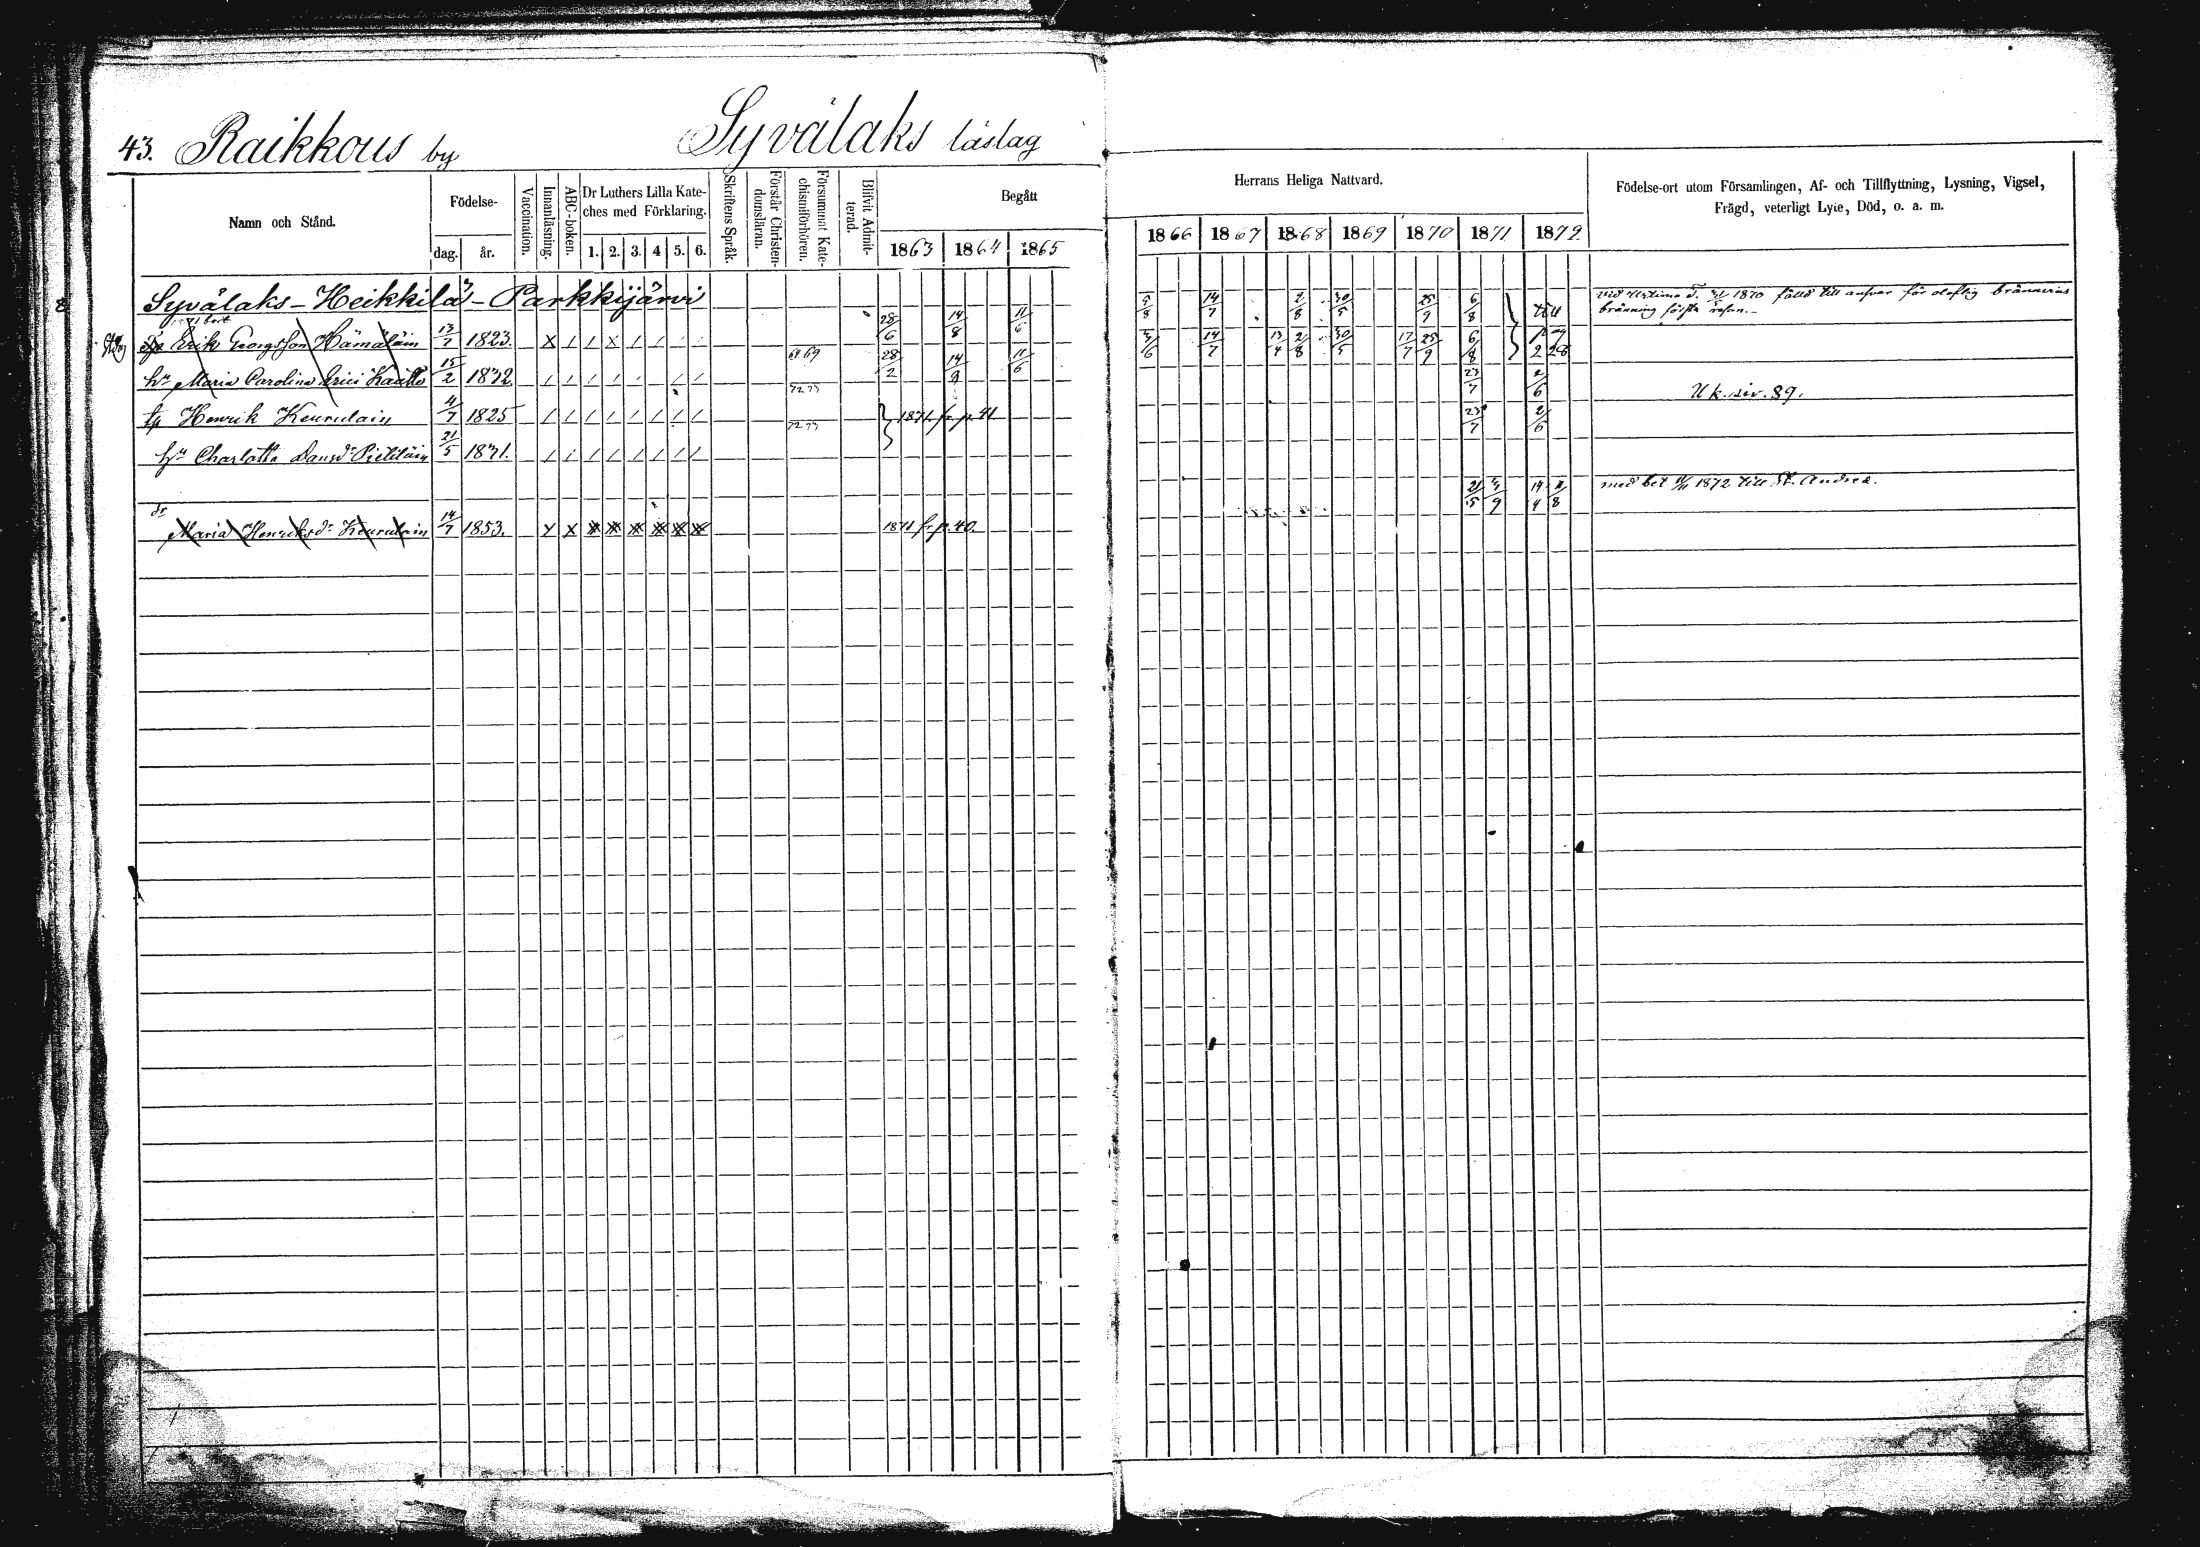 43. Raikkous by Syvälaks läslag
Namn och Stånd.
Födelse-
dag. år.
Vaccination.
Innanläsning.
ABC-boken.
Dr Luthers Lilla Kate-
ches med Förklaring.
1. 2. 3. 4 5. 6.
Skriftens Språk.
Förstår Christen-
domsläran.
Försummat Kate-
chismiförhören.
Blifvit Admit-
terad.
Begått
1863 1864 1865
Herrans Heliga Nattvard.
1866 1867 1868 1869 1870 1871 1872
Födelse-ort utom Församlingen, Af- och Tillflyttning, Lysning, Vigsel,
Frägd, veterligt Lyte, Död, o. a. m.
Syvälaks-Heikkilä-Parkkijärvi
vid 1870 fälld till ansvar för olaflig brännvins
bränning första resan.-
Erik Georgsson Hämäläin 13/7 1823. X / / X / / / / 28/6 14/8 11/6 5/8 14/7 2/8 30/5 25/9 6/8
hu Maria Carolina Erici Kaatto 15/2 1832 / / / / / / / 64 69 28/2 14/8 11/6 14/7 13/4 2/8 30/5 17/7 25/9 6/8
Henrik Keurulain 4/7 1825 / / / / / / / / 72 73 1871 fr p. 41 23/7 2/6 Uk. siv. 89.
hu Charlotta Dansdr Pietiläin 21/5 1831. / / / / / / / / 72 73 23/7 2/6
dr
Maria Henriksdr Keurulain 14/7 1853. X X X X X X X X 1871 fr p. 40. 21/5 3/9 14/4 11/8 med bet 11/11 1872 till St. Andreæ.